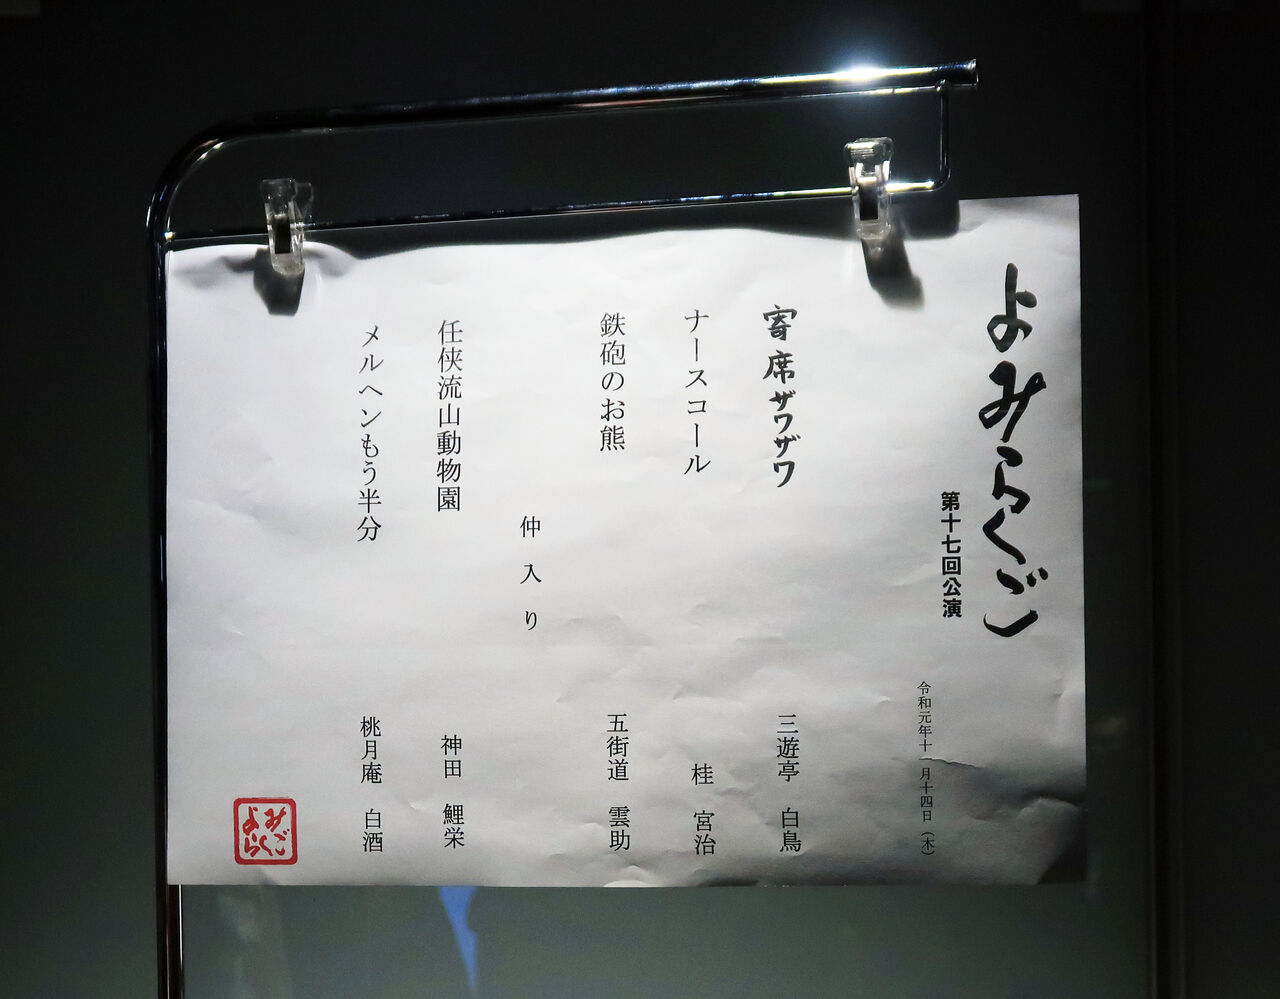 よみらくご
第十七回公演
令和元年十一月十四日（木）
寄席ザワザワ
三遊亭　白鳥
ナースコール
桂　宮治
鉄砲のお熊
五街道　雲助
仲入り
任侠流山動物園
神田　鯉栄
メルヘンもう半分
桃月庵　白酒
よみ
らくご